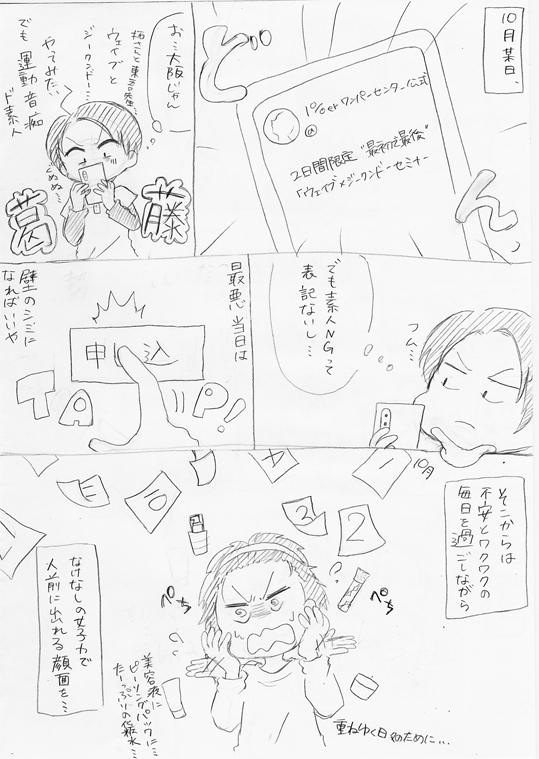 10月某日、
ど
ん、
1%er ワンパーセンター公式
@
2日間限定"最初で最後"
「ウェイブ×ジークンドーセミナー
お…大阪じゃん
拓さんと東吾先生…
ウェイブと
ジークンドー…
やってみたい
でも運動音痴
ド素人
ぐぬぬ…
葛藤
でも素人NGって
表記ないし…
フム…
最悪当日は
申し込
TAP!
壁のシミに
なればいいや
そこからは
不安とワクワクの
毎日を過ごしながら
10月
1
2
3
なけなしの女子力で
人前に出れる顔面を…
ぺち
ぺち
美容液に
ピーリングパックに…
たーっぷりの化粧水…
重ねゆく日々のために…